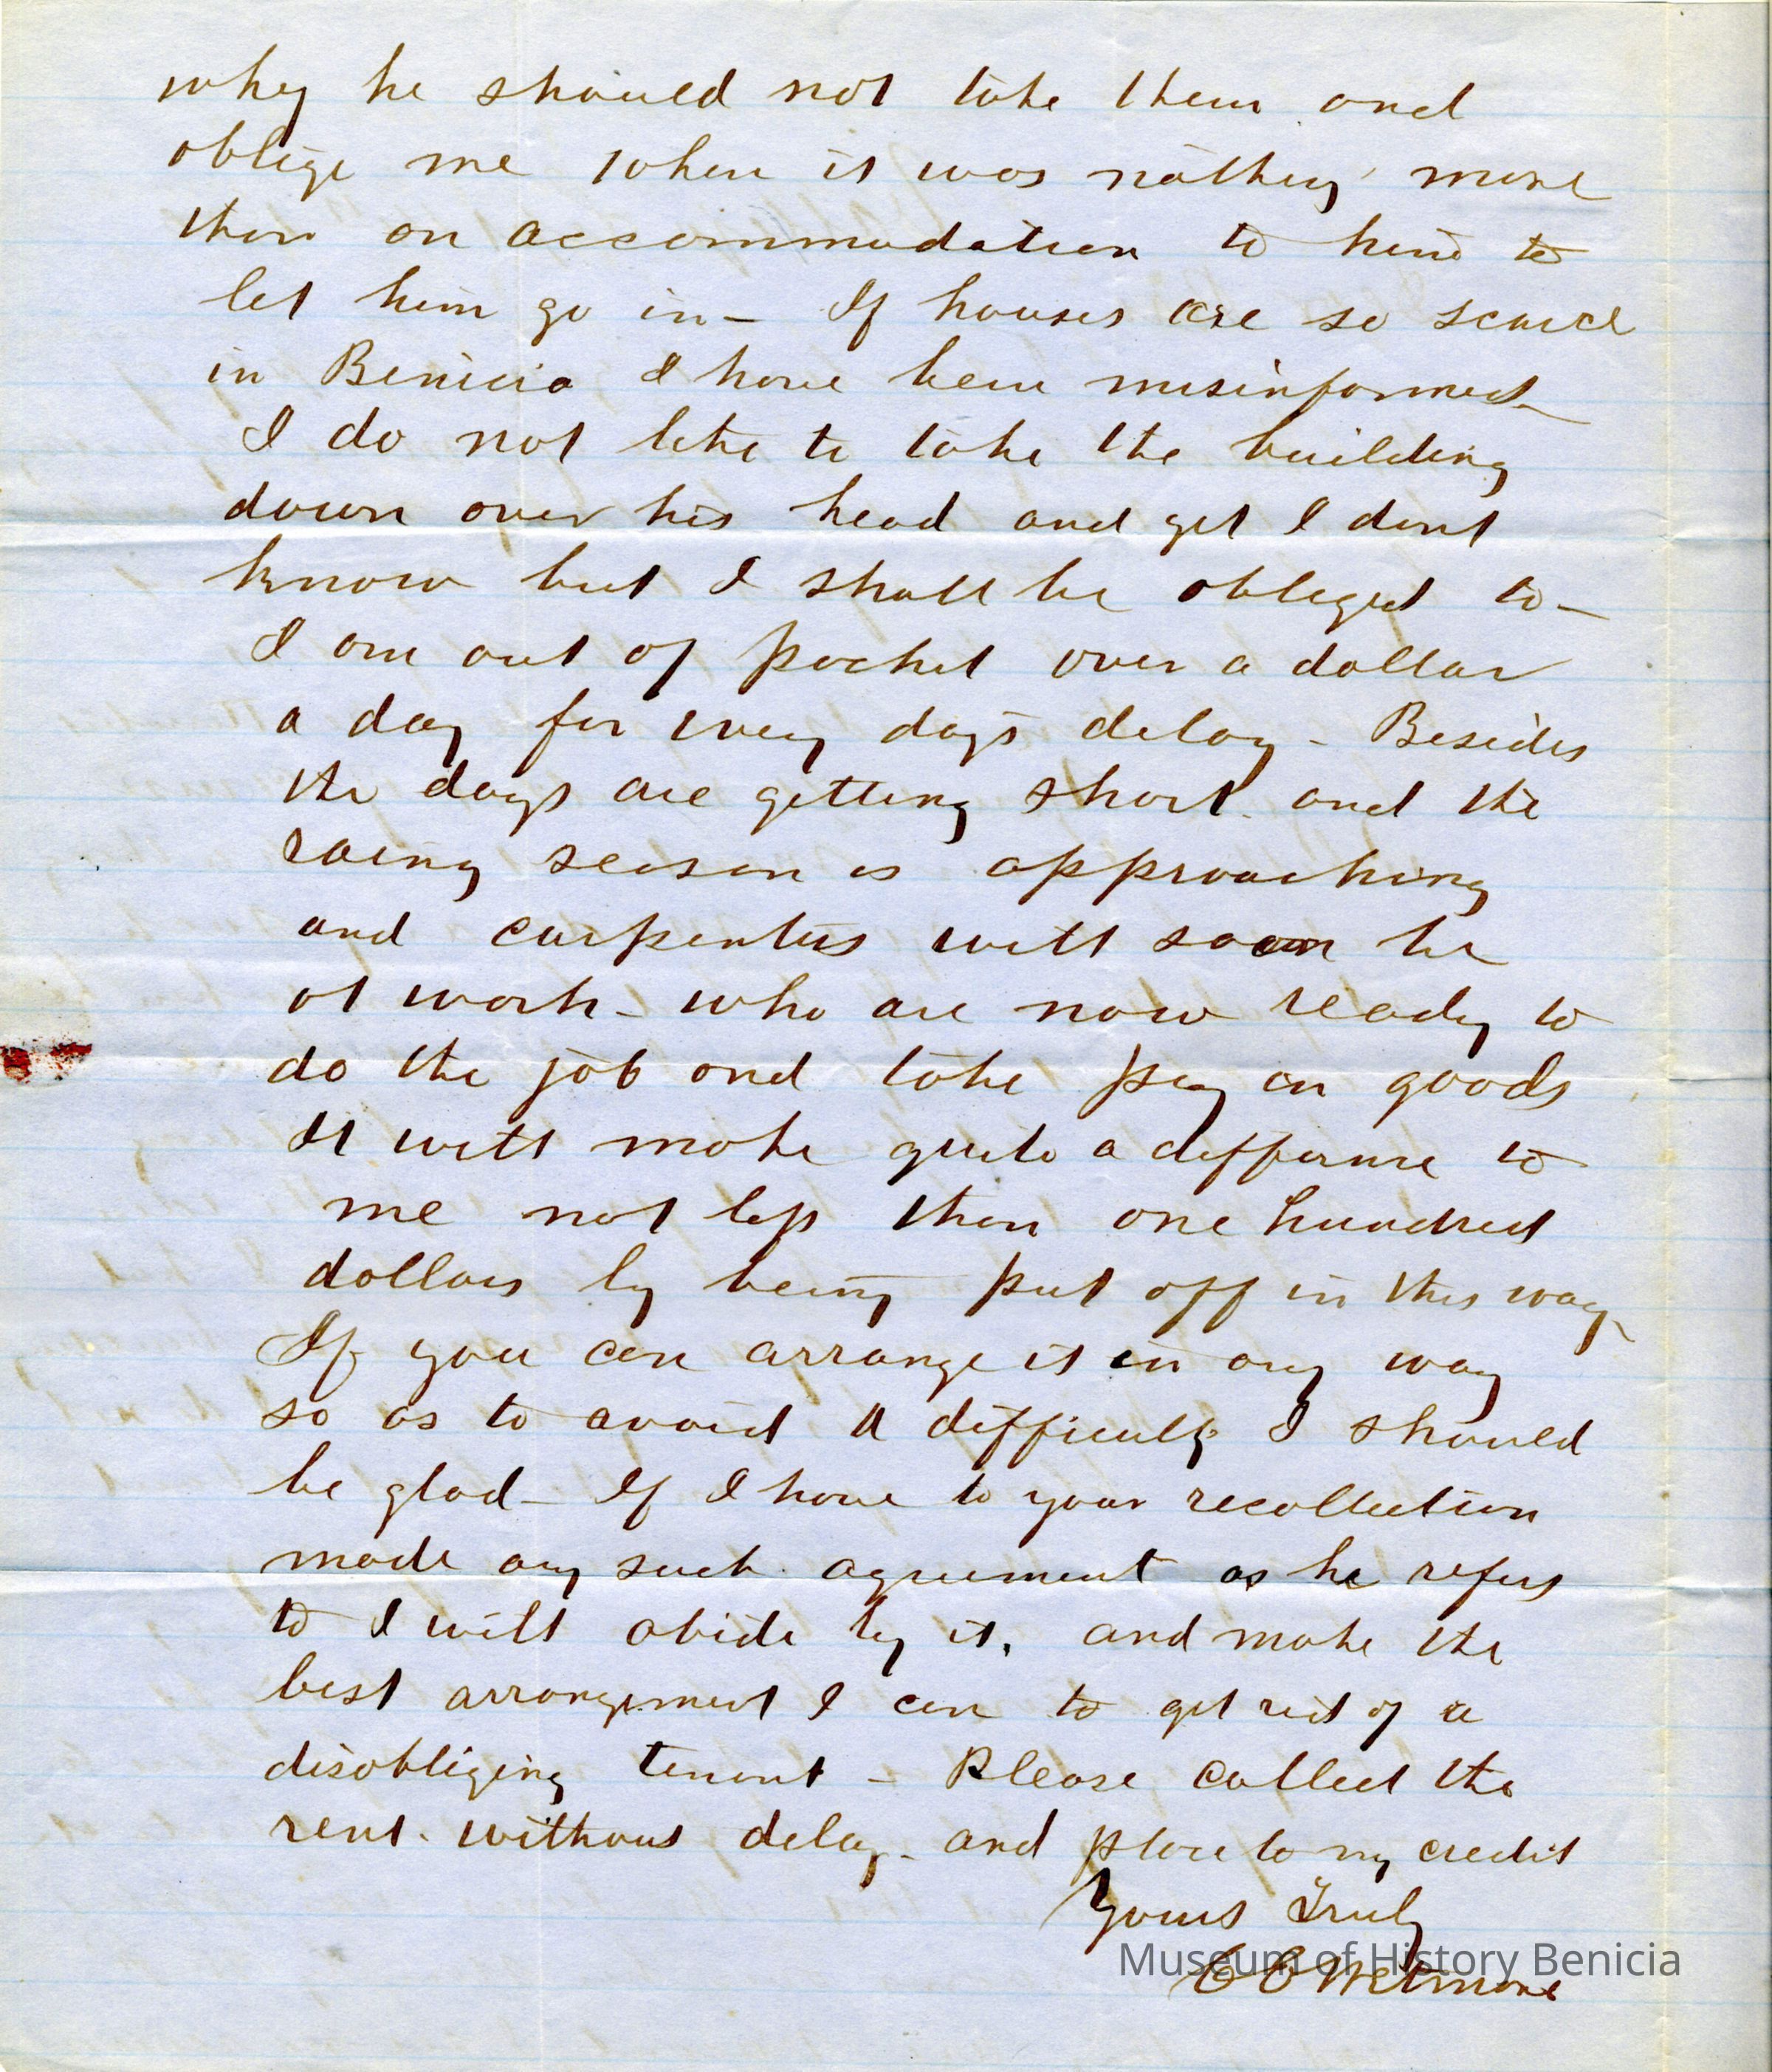 why he should not take them and
oblige me when it was nothing more
than an accommodation to him to
let him go in – If houses are so scarce
in Benicia I have been misinformed –
I do not like to take the building
down over his head and yet I dont
know but I shall be obliged to –
I am out of pocket over a dollar
a day for every days delay – Besides
the days are getting short. and the
rainy season is approaching
and carpenters will soon be
at work – who are now ready to
do the job and take pay in goods
It will make quite a difference to
me not less than one hundred
dollars by being put off in this way –
If you can arrange it in any way
so as to avoid a difficulty I should
be glad – If I have to your recollection
made any such agreement as he refers
to I will abide by it, and make the
best arrangement I can to get rid of a
disobliging tenant – Please collect the
rent. without delay – and place to my credit
Yours Truly
C C Wetmore
Museum of History Benicia